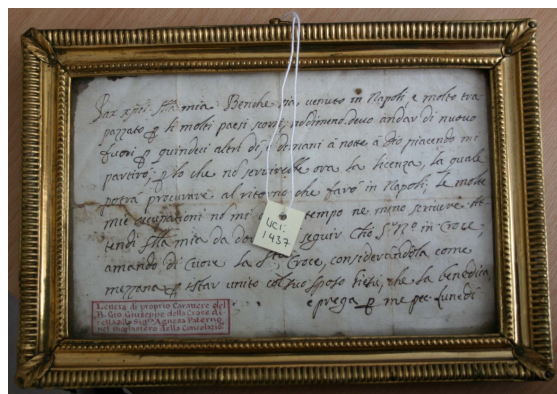 Pax xpi: Figlia mia Benche sia venuto in Napoli, e molto tra
pazzato p li molti paesi scorsi, nodimeno devo andar di nuovo
fuori p quindeci altri di, e dimani à notte à Dio piacendo mi
partiro; p lo che nō servirebbe ora la licenza, la quale
potra procurare al ritorno che farò in Napoli; le molte
mie occupationi nō mi tempo ne meno scrivere At
tendi figlia mia da seguir in Croce,
amando di cuore la Croce, considerandola come
mezzana p star unito col suo sposo Giesù, che la benedica
e prega p me pec.
UCI:
1437
Lettera di proprio Carattere del
B. Gio Giuseppe della Croce di
retta alla Sigra Agnesa Paterno
nel monastero della Consolazio